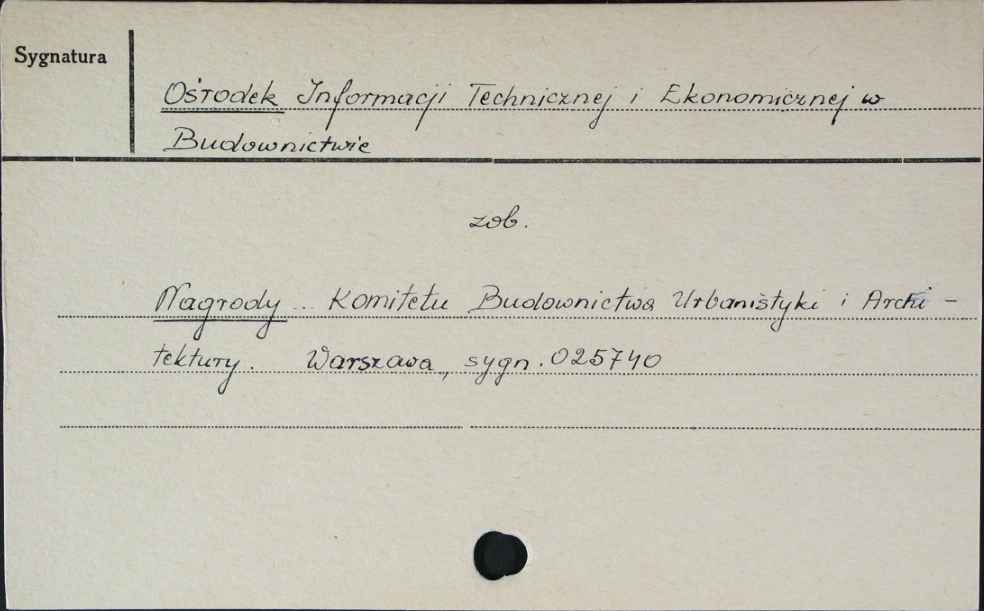 Sygnatura
Ośrodek Informacji Technicznej i Ekonomicznej w
Budownictwie
zob.
Nagrody ... Komitetu Budownictwa Urbanistyki i Archi-
tektury. Warszawa, sygn. 025740